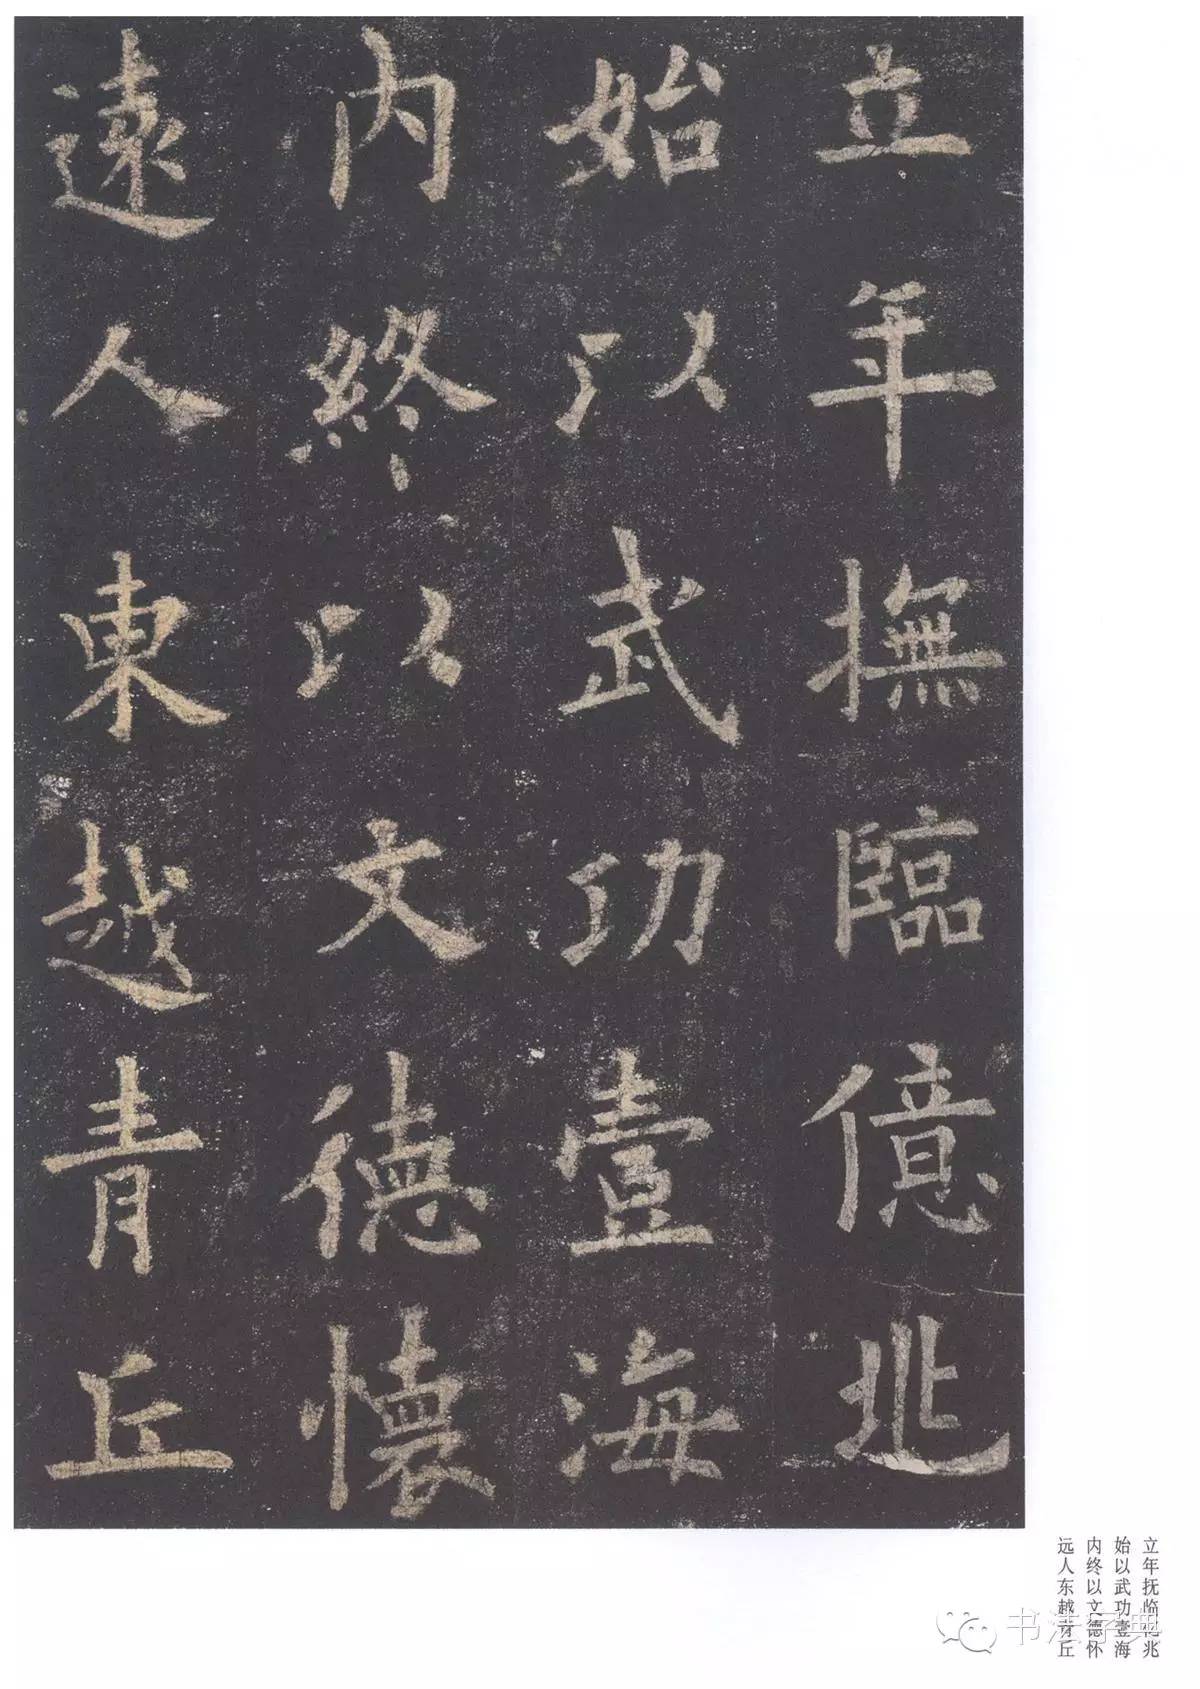 立年撫臨億兆
始以武功壹海
内終以文德懷
遠人東越青丘
立年抚临亿兆
始以武功壹海
内终以文德怀
远人东越青丘
书法字典